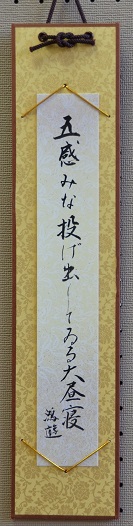 五感みな投げ出してゐる大昼寝